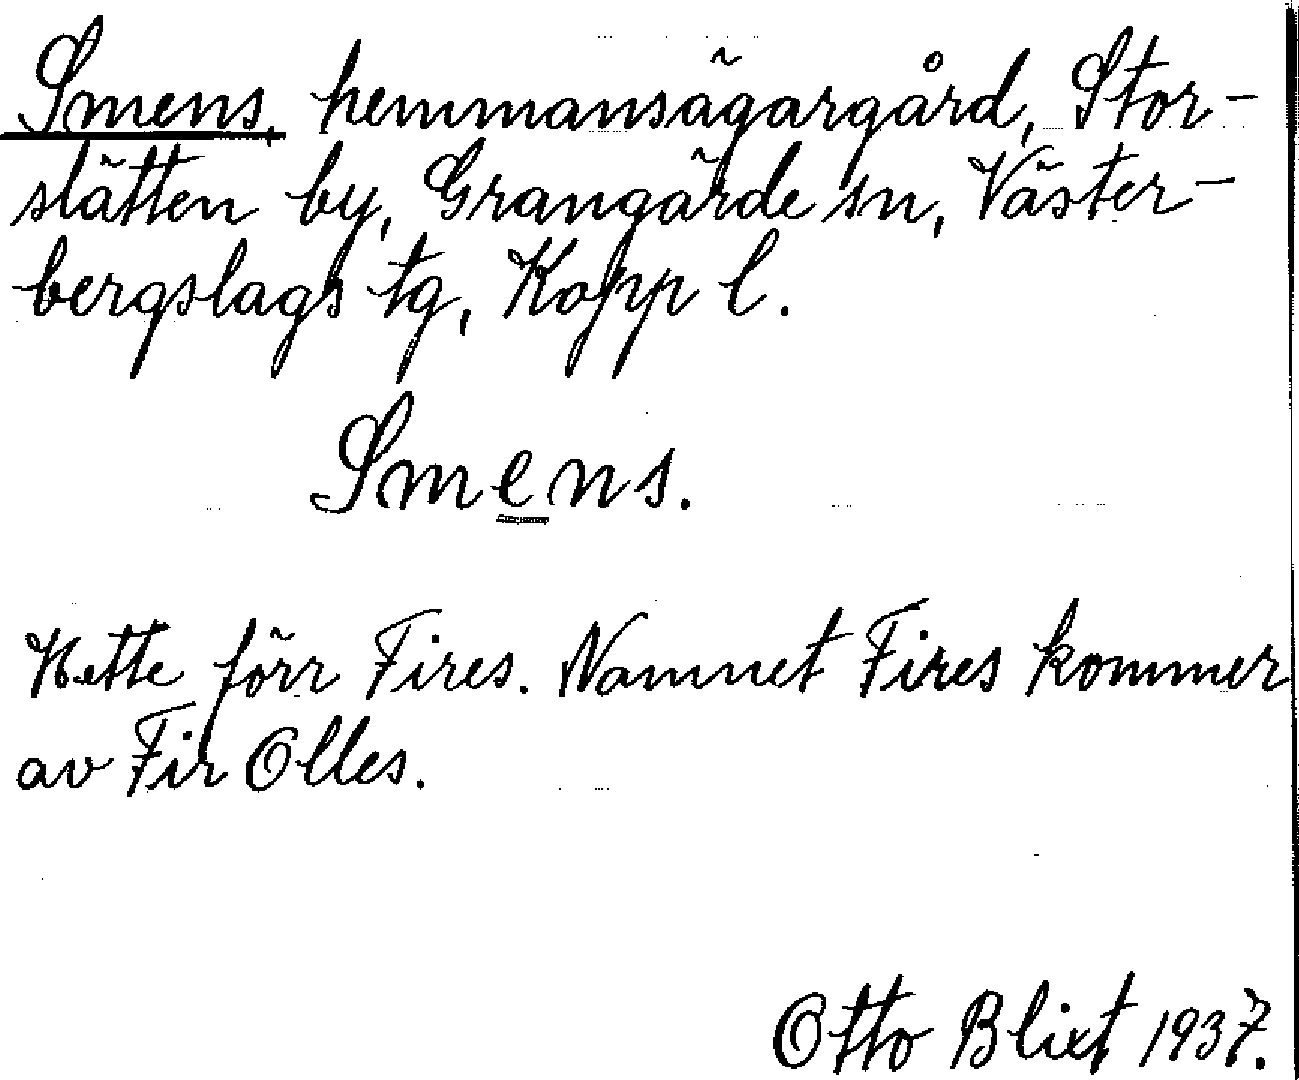 Smens, hemmansägargård, Stor-
slätten by, Grangärde sn, Väster-
bergslags tg, Kopp l.
Smens.
Hette förr Fires. Namnet Fires kommer
av Fir Olles.
Otto Blixt 1937.